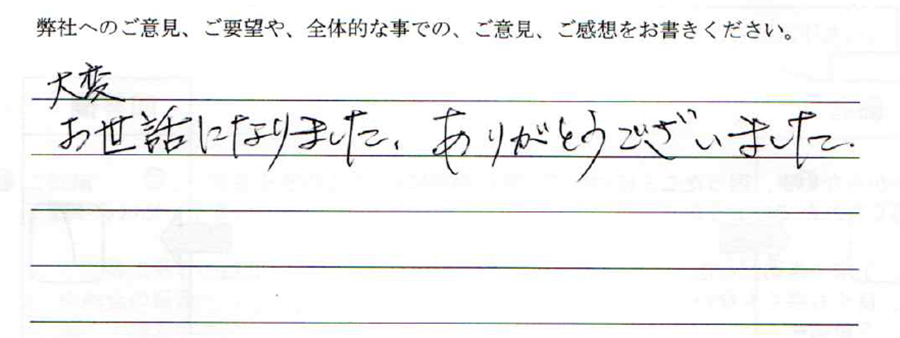 弊社へのご意見、ご要望や、全体的な事での、ご意見、ご感想をお書きください。
大変
お世話になりました、ありがとうございました.